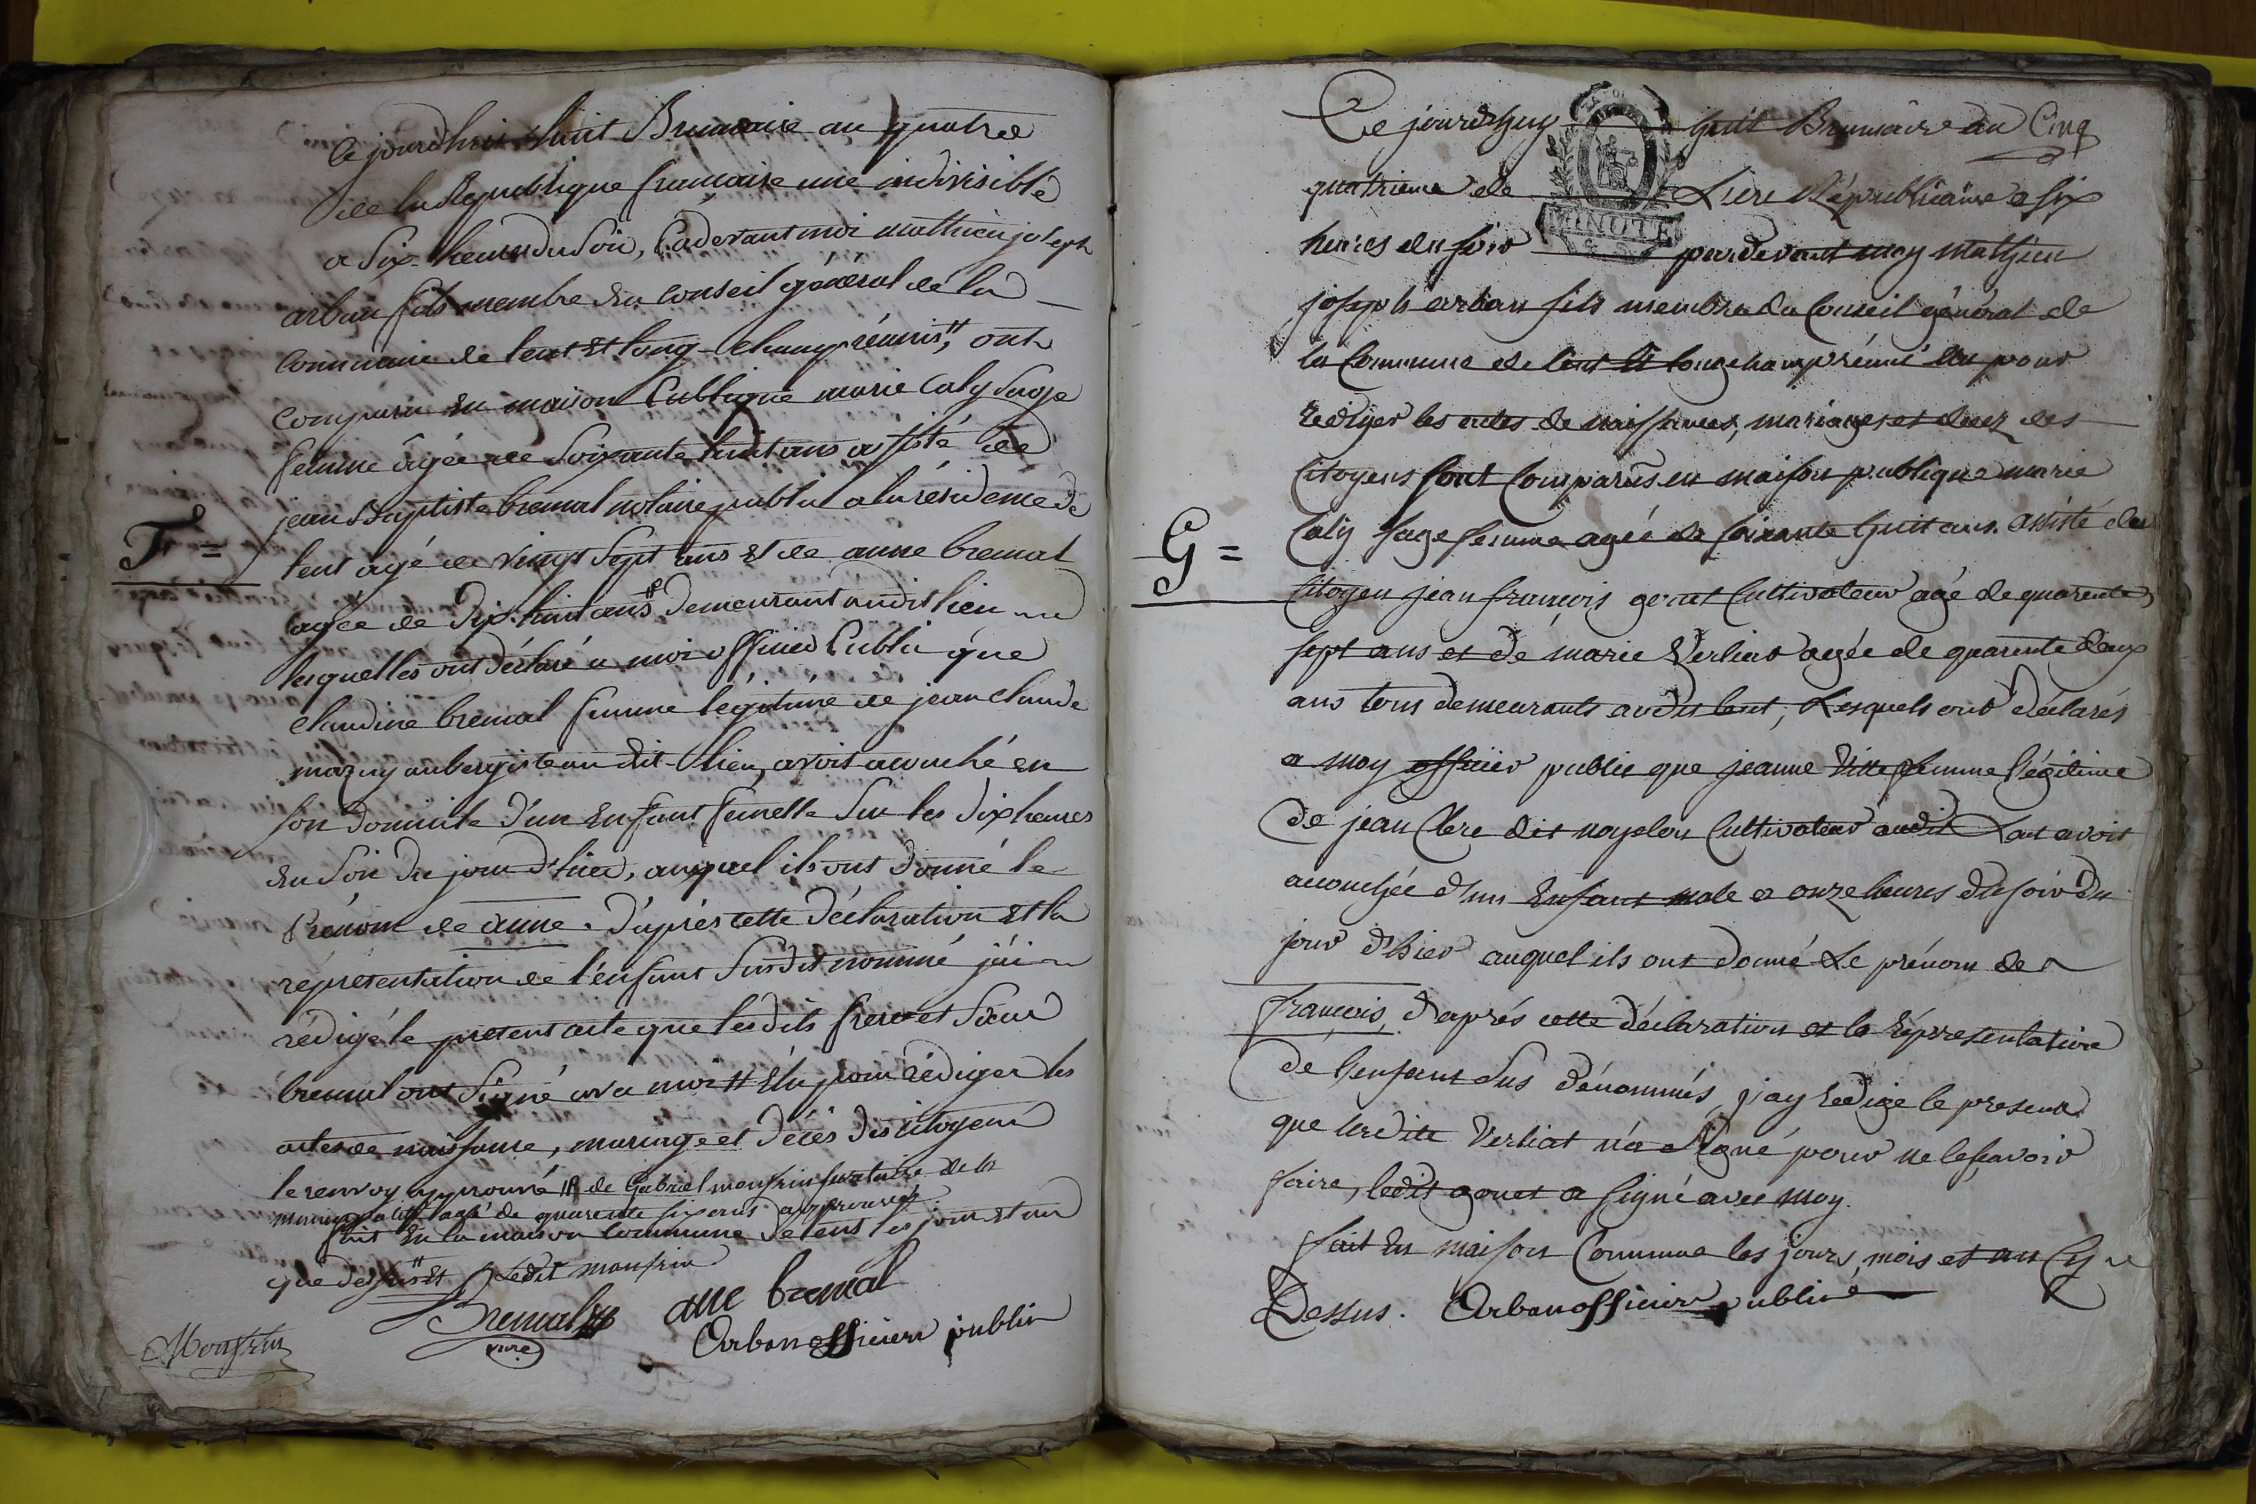 Cejourdhui huit Brumaire an quatre
de la Republique francaise une indivisible
a Six heures du Soir, Pardevant moi mathieu joseph
arban fils membre du conseil général de la
commune de lent et long-champ réunis ⸗, ont
comparu en maison Publique marie Caly Sage
femme âgée de Soixante huit ans assisté de
jean Baptiste bremal notaire public a la résidence de
F =
lent agé de vingt Sept ans et de anne bremal
agée de Dix-huit ans # demeurant audit lieu
lesquelles ont déclaré a moi officier Public que
claudine bremal femme légitime de jean claude
mazuy aubergiste au dit-lieu, avoit acouché en
son domicile d'un Enfant femelle Sur les dix heures
du Soir du jour d'hier, auquel ils ont donné le
Prénom de anne. D'après cette déclaration et la
répresentation de l'enfant Susdit nommé j'ai
rédigé le present acte que lesdits frere et Sœur
bremal ont Signé avec moi # Elu pour rédiger les
actes de naissance, mariage et décès des citoyens
le renvoy approuvé # de Gabriel monfrin de la
agé de quarente six ans approuvés
fait En la maison Commune de lent les jour et an
que dessus # et Ledit monfrin
Bremal
nore
ane bremal
Arban officier public
Monfrin
Ce jourdhuy huit Brumaire an Cinq
quatrieme de L'ere Républicaine a six
MINUTE
heures du soir pardevant moy mathieu
joseph arban fils membre du Conseil général de
la Commune de lent et longchamp réunis élu pour
rediger les actes de naissances, mariages et decez des
Citoyens sont Comparus en maison publique marie
G =
Caly sage femme agée de soixante huit ans. assisté du
Citoyen jean francois gonet Cultivateur agé de quarente
sept ans et de marie Verliat agée de quarente deux
ans tous demeurants audit lent, Lesquels ont déclarés
a moy officier public que jeanne Vitte femme légitime
de jean Clerc dit noyelon Cultivateur audit Lent avoit
acouchée d'un Enfant male a onze heures du soir du
jour d'hier auquel ils ont donné Le prénom de
francois, d'aprés cette déclaration et la représentation
de l'enfant sus dénommés j'ay redigé le present
que ladite Verliat n'a Signé pour ne le sçavoir
faire, ledit gonet a signé avec moy.
fait En maison Commune les jours, mois et an Cy
Dessus. Arban officier public